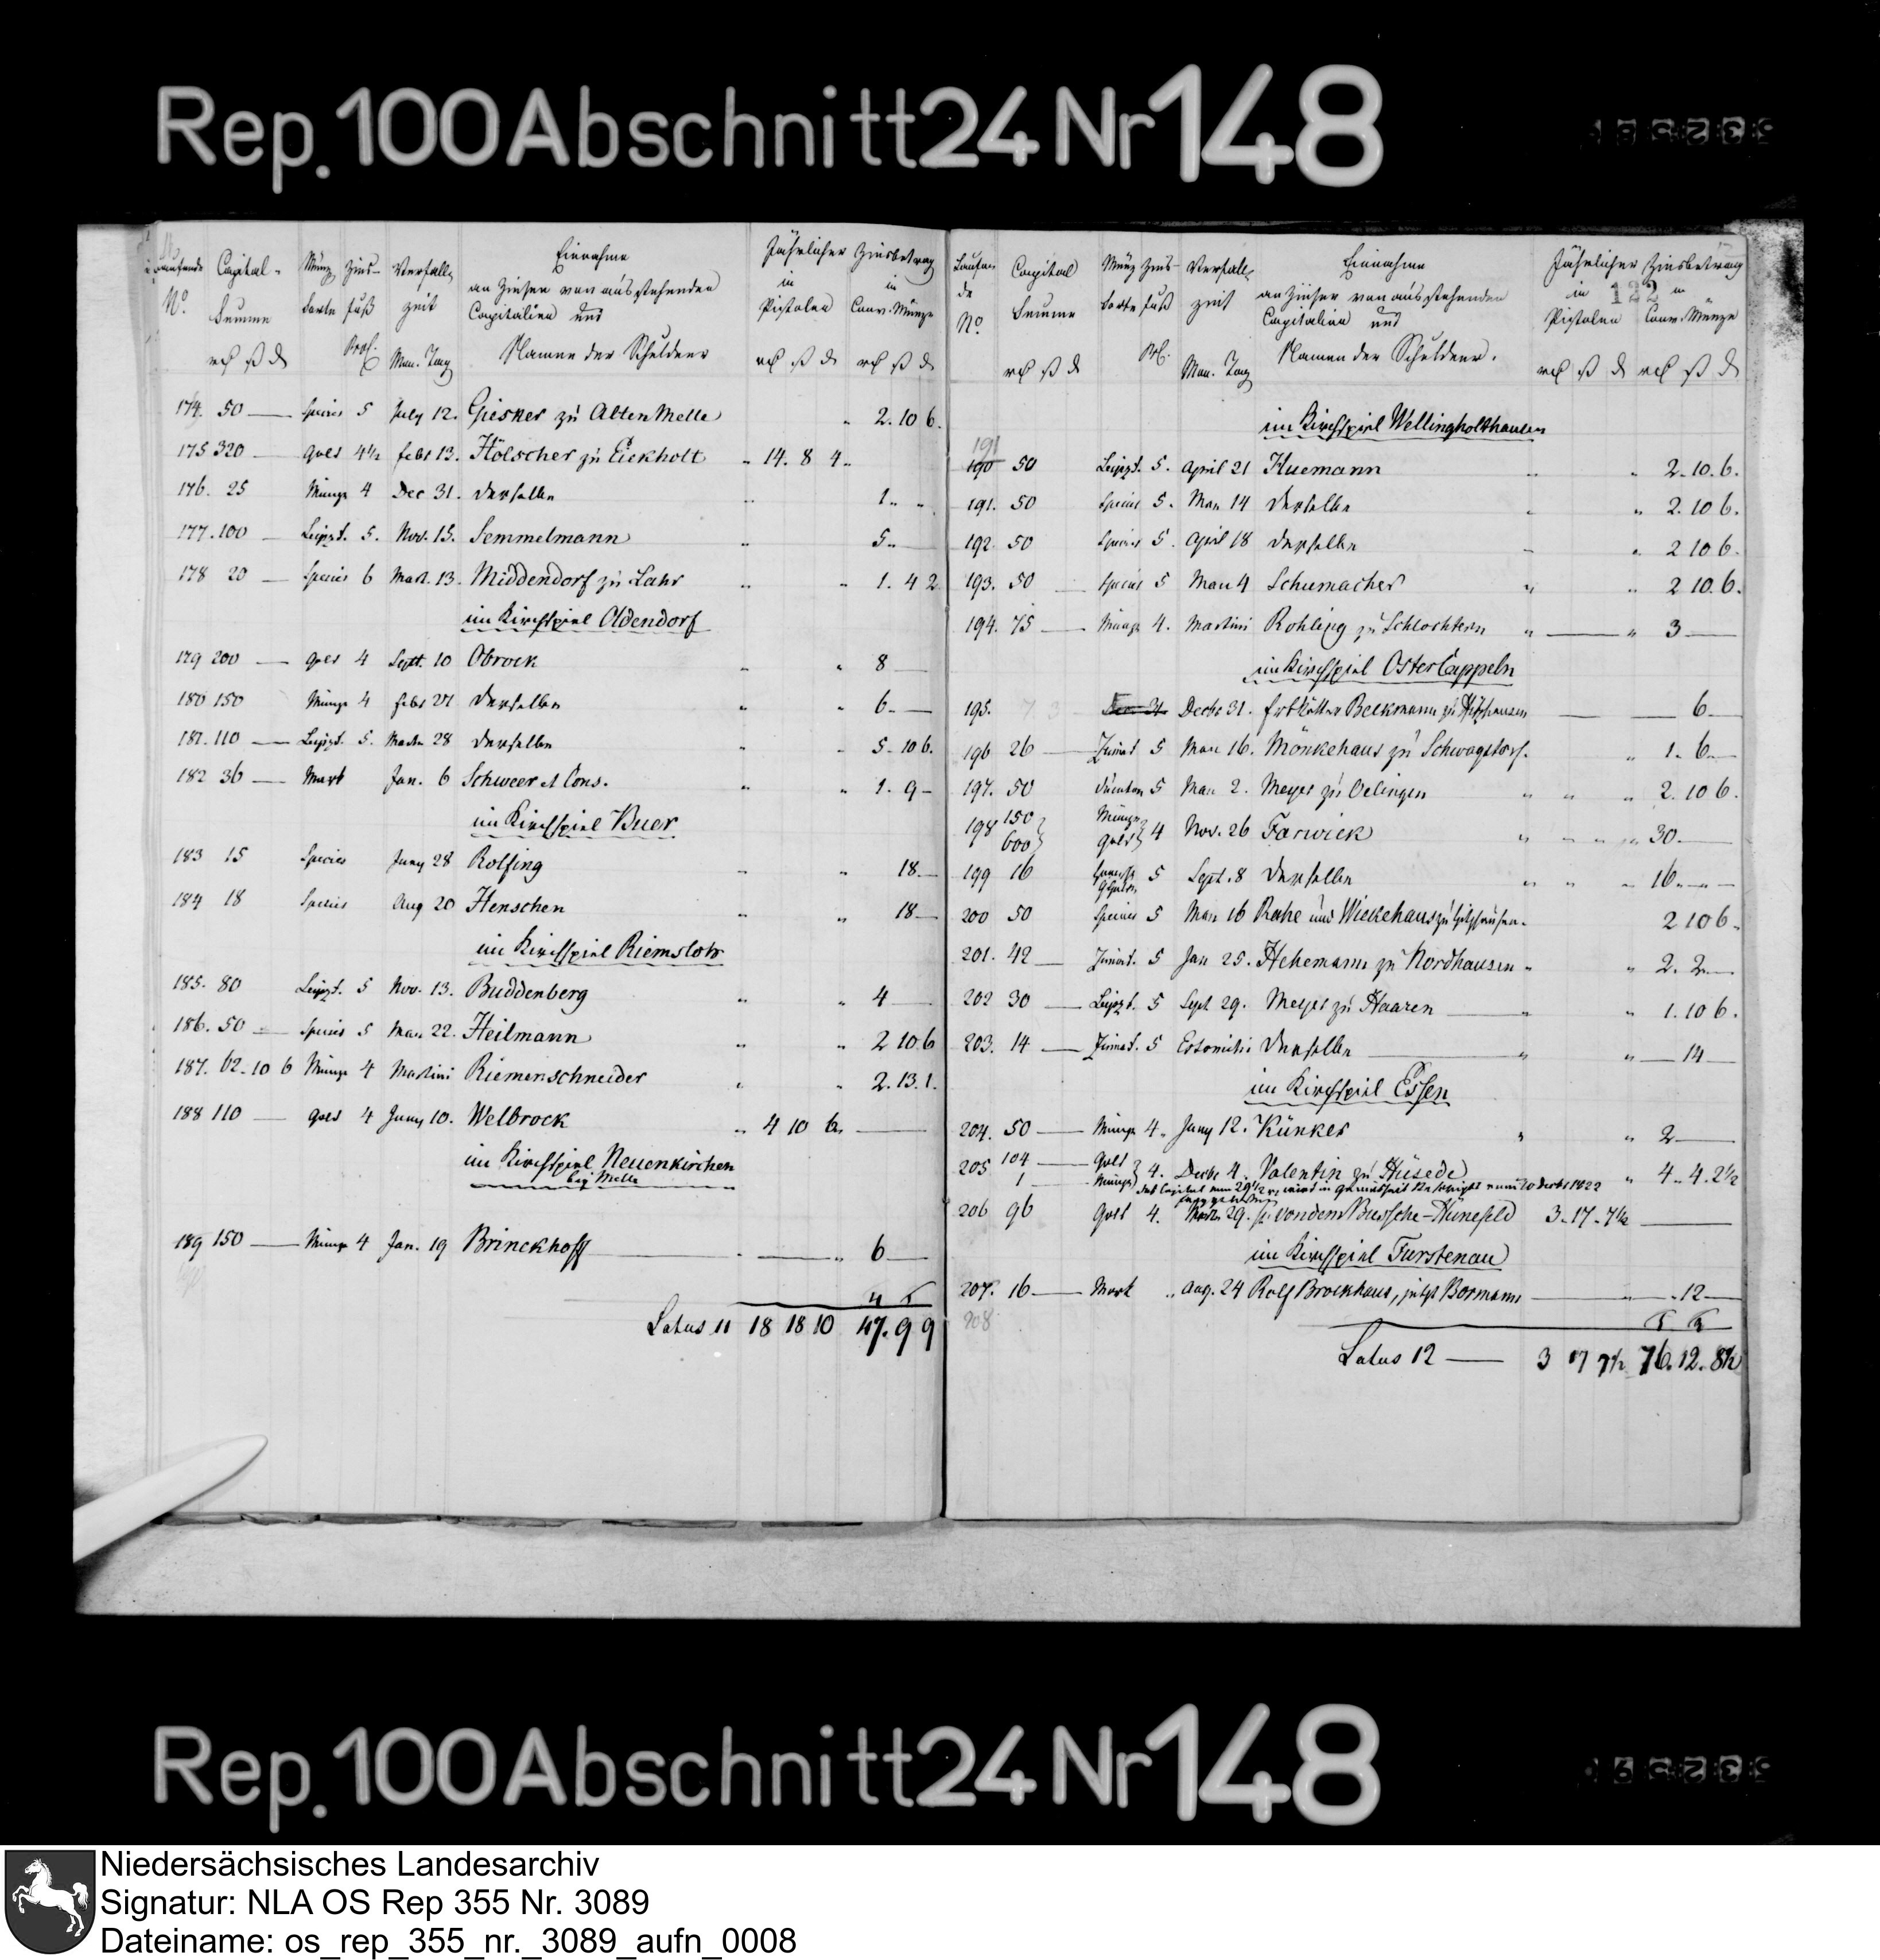 Rep. 100 Abschnitt 24 Nr 148
Laufende Capital- Münz Zins- Verfall- Einnahme Jährlicher Zinsbetrag
No. Summe Sorte fuß zeit an Zinsen von ausstehenden in in
Capitalien und Pistolen Conv. Münze
Proc. Mon. Tag Namen der Schuldner
174. 50 — Species 5 July 12. Giesker zu Alten Melle " 2. 10 6.
175 320 — Gold 4½ Febr 13. Hölscher zu Eickholt " 14. 8 4 "
176. 25 Münze 4 Dec 31. Derselbe " 1 " "
177. 100 — Leipzt. 5. Nov. 15. Semmelmann " 5 "
178 20 — Species 6 Mart. 13. Middendorf zu Lahr " " 1. 4 2
im Kirchspiel Oldendorf
179 200 — Gold 4 Sept. 10 Obrock " " 8 —
180 150 Münze 4 Febr 27 Derselbe " " 6 —
181. 110 — Leipzt. 5. Martz 28 Derselbe " " 5 - 10 6.
182 36 — Mark Jan. 6 Schweer et Cons. " " 1. 9 -
im Kirchspiel Buer
183 15 Species Juny 28 Rolfing " " 18 —
184 18 Species Aug 20 Henschen " " 18 —
im Kirchspiel Riemsloh
185. 80 Leipzt. 5 Nov. 13. Buddenberg " " 4 —
186. 50 — Species 5 Mai 22. Heilmann " " 2 10 6
187. 62 - 10 6 Münze 4 Martini Riemenschneider " " 2. 13. 1.
188 110 — Gold 4 Juny 10. Welbrock " 4 10 6. —
im Kirchspiel Neuenkirchen
bey Melle
189 150 — Münze 4 Jan. 19 Brinckhoff — " — " 6 —
Latus 11 18 18 10 47. 9 9
Laufende Capital Münz Zins- Verfall- Einnahme Jährlicher Zinsbetrag
No. Summe Sorte fuß zeit an Zinsen von ausstehenden in 122 in
Capitalien und Pistolen Conv. Münze
Mon. Tag Namen der Schuldner.
im Kirchspiel Wellingholthausen
191
190 50 Leipzt. 5. April 21 Huemann " " 2. 10. 6.
191. 50 Species 5. Mai 14 Derselbe " " 2. 10 6.
192. 50 Species 5. April 18 Derselbe " " 2 10 6.
193. 50 — Species 5 Mai 4 Schumacher " " 2 10. 6.
194. 75 — Münze 4. Martini Rohling zu Schlochtern " — " 3 —
im Kirchspiel OsterCappeln
195. Decbr 31. Erbkötter Beckmann zu Hitzhausen — — 6 —
196 26 — 5 Mai 16. Mönkehaus zu Schwagstorf. " 1. 6 —
197. 50 Ducaten 5 Mai 2. Meyer zu Oelingen " " " 2. 10 6.
198 150 Münze 4 Nov. 26 Farwick " " " 30 —
600 Gold
199 16 5 Sept. 8 Derselbe " " " 16 " — " —
200 50 Species 5 Mai 16 Rahe und Wiekehaus zu Hitzhausen. 2 10 6.
201. 42 — 5 Jan 25. Hehemann zu Nordhausen " " 2. 2 —
202 30 — Leipzt. 5 Sept 29. Meyer zu Haaren — " " 1. 10 6.
203. 14 — 5 Estomihi Derselbe — " " — 14 —
im Kirchspiel Essen
204. 50 — Münze 4. Juny 12. Künker " " 2 —
205 104 — Gold 4. Decbr 4. Valentin zu Hüsede " 4. 4. 2½
1 — Münze
206 96 Gold 4. 29. von dem Bussche-Hünefeld 3 - 17 - 7½ —
im Kirchspiel Furstenau
207. 16 — Mark " Aug. 24 Rolf Brockhaus, jetzt Bormann — " — " 12 —
208
Latus 12 — 3 17 7½ 76. 12. 8½
Rep. 100 Abschnitt 24 Nr 148
Niedersächsisches Landesarchiv
Signatur: NLA OS Rep 355 Nr. 3089
Dateiname: os_rep_355_nr._3089_aufn_0008